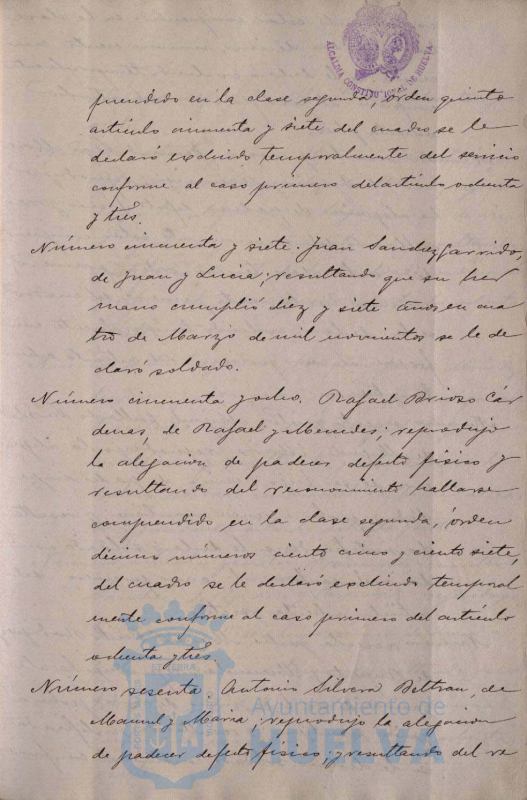 ALCALDIA CONSTITUCIONAL DE HUELVA
prendido en la clase segunda, orden quinto
artículo cincuenta y siete del cuadro se le
declaró excluido temporalmente del servicio
conforme al caso primero del artículo ochenta
y tres.
Número cincuenta y siete. Juan Sanchez Garrido,
de Juan y Lucia; resultando que su her
mano cumplió diez y siete años en cua
tro de Marzo de mil novecientos se le de
claró soldado.
Número cincuenta y ocho. Rafael Brioso Cár
denas, de Rafael y Mercedes; reprodujo
la alegacion de padecer defecto físico y
resultando del reconocimiento hallarse
comprendido en la clase segunda, orden
décimo números ciento cinco y ciento siete,
del cuadro se le declaró excluido temporal
mente conforme al caso primero del artículo
ochenta y tres.
Número sesenta. Antonio Silvera Beltran, de
Manuel y Maria; reprodujo la alegacion
de padecer defecto físico; y resultando del re
Ayuntamiento de
HUELVA